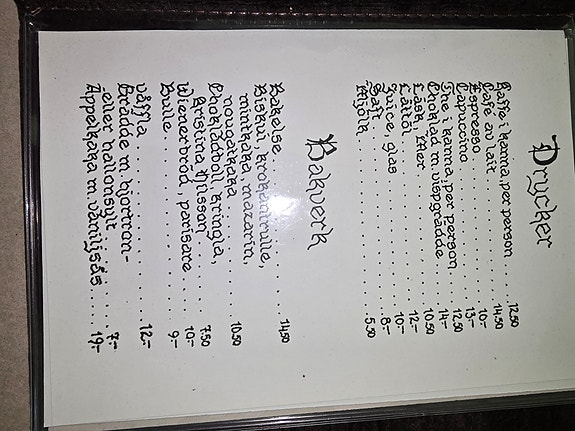 Drycker
Kaffe i kanna, per person .... 12.50
Café au lait .... 14.50
Espresso .... 10:-
Capuccino .... 13:-
The i kanna, per person .... 12.50
Choklad m. vispgrädde .... 14:-
Läsk, Mer .... 10.50
Lättöl .... 12:-
Juice, glas .... 10:-
Saft .... 8:-
Mjölk .... 5.50
Bakverk
Bakelse .... 14.50
Biskvi, krokanrulle,
mintkaka, mazarin,
nougatkaka .... 10.50
Chokladboll, kringla,
Kristina Nilsson .... 7.50
Wienerbröd, parisare .... 10:-
Bulle .... 9:-
Våffla .... 12:-
Grädde m. hjortron-
eller hallonsylt .... 7:-
Äppelkaka m. vaniljsås .... 19:-